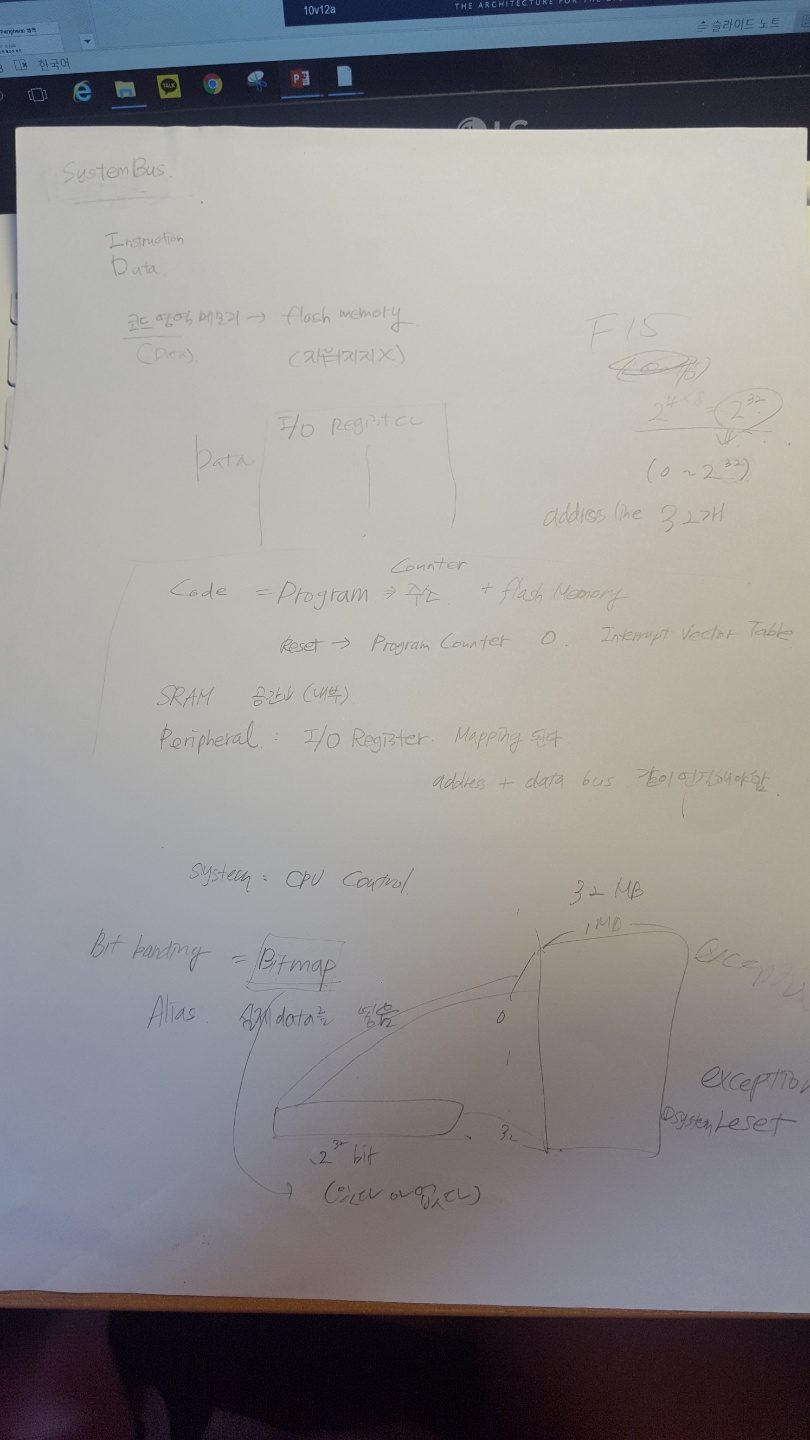 10v12a
THE ARCHITECTURE FOR THE
슬라이드 노트
한국어
TALK
LG
System Bus.
Instruction
Data
코드 영역 메모리 → flash memory
(지워지지 X)
F15
2³²
(0 ~ 2³²)
address line 32개
I/O Register
Data
Counter
Code = Program → 주소 + flash Memory
Reset → Program Counter 0. Interrupt Vector Table
SRAM 공간↓ (내부)
Peripheral : I/O Register. Mapping 된다
address + data bus 같이 연결해야함
System = CPU Control
32 MB
1 MB
Bit banding = Bitmap
Alias data를
0
1
32
2³² bit
exception
system reset
(있다 or 없다)